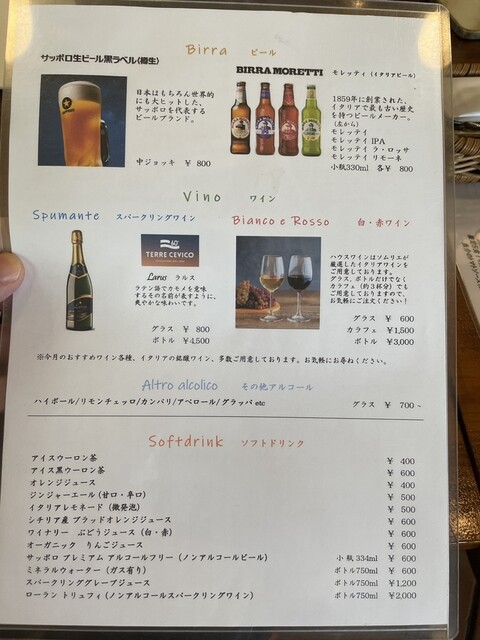 Birra ビール
サッポロ生ビール黒ラベル(樽生)
日本はもちろん世界的
にも大ヒットした、
サッポロを代表する
ビールブランド。
中ジョッキ ¥ 800
BIRRA MORETTI モレッティ (イタリアビール)
1859年に創業された、
イタリアで最も古い歴史
を持つビールメーカー。
(左から)
モレッティ
モレッティ IPA
モレッティ ラ・ロッサ
モレッティ リモーネ
小瓶330ml 各¥ 800
Vino ワイン
Spumante スパークリングワイン
TERRE CEVICO
Larus ラルス
ラテン語でカモメを意味
するその名前が表すように、
爽やかな味わいです。
グラス ¥ 800
ボトル ¥4,500
Bianco e Rosso 白・赤ワイン
ハウスワインはソムリエが
厳選したイタリアワインを
ご用意しております。
グラス、ボトルだけでなく
カラフェ(約3杯分)でも
ご用意しておりますので、
お気軽にご注文ください!
グラス ¥ 600
カラフェ ¥1,500
ボトル ¥3,000
※今月のおすすめワイン各種、イタリアの銘醸ワイン、多数ご用意しております。お気軽にお尋ねください。
Altro alcolico その他アルコール
ハイボール/リモンチェッロ/カンパリ/アペロール/グラッパ etc グラス ¥ 700~
Softdrink ソフトドリンク
アイスウーロン茶 ¥ 400
アイス黒ウーロン茶 ¥ 600
オレンジジュース ¥ 400
ジンジャーエール(甘口・辛口) ¥ 500
イタリアレモネード (微発泡) ¥ 500
シチリア産 ブラッドオレンジジュース ¥ 600
ワイナリー ぶどうジュース (白・赤) ¥ 600
オーガニック りんごジュース ¥ 600
サッポロ プレミアム アルコールフリー (ノンアルコールビール) 小瓶 334ml ¥ 600
ミネラルウォーター (ガス有り) ボトル750ml ¥ 600
スパークリンググレープジュース ボトル750ml ¥1,200
ローラン トリュフィ (ノンアルコールスパークリングワイン) ボトル750ml ¥2,000